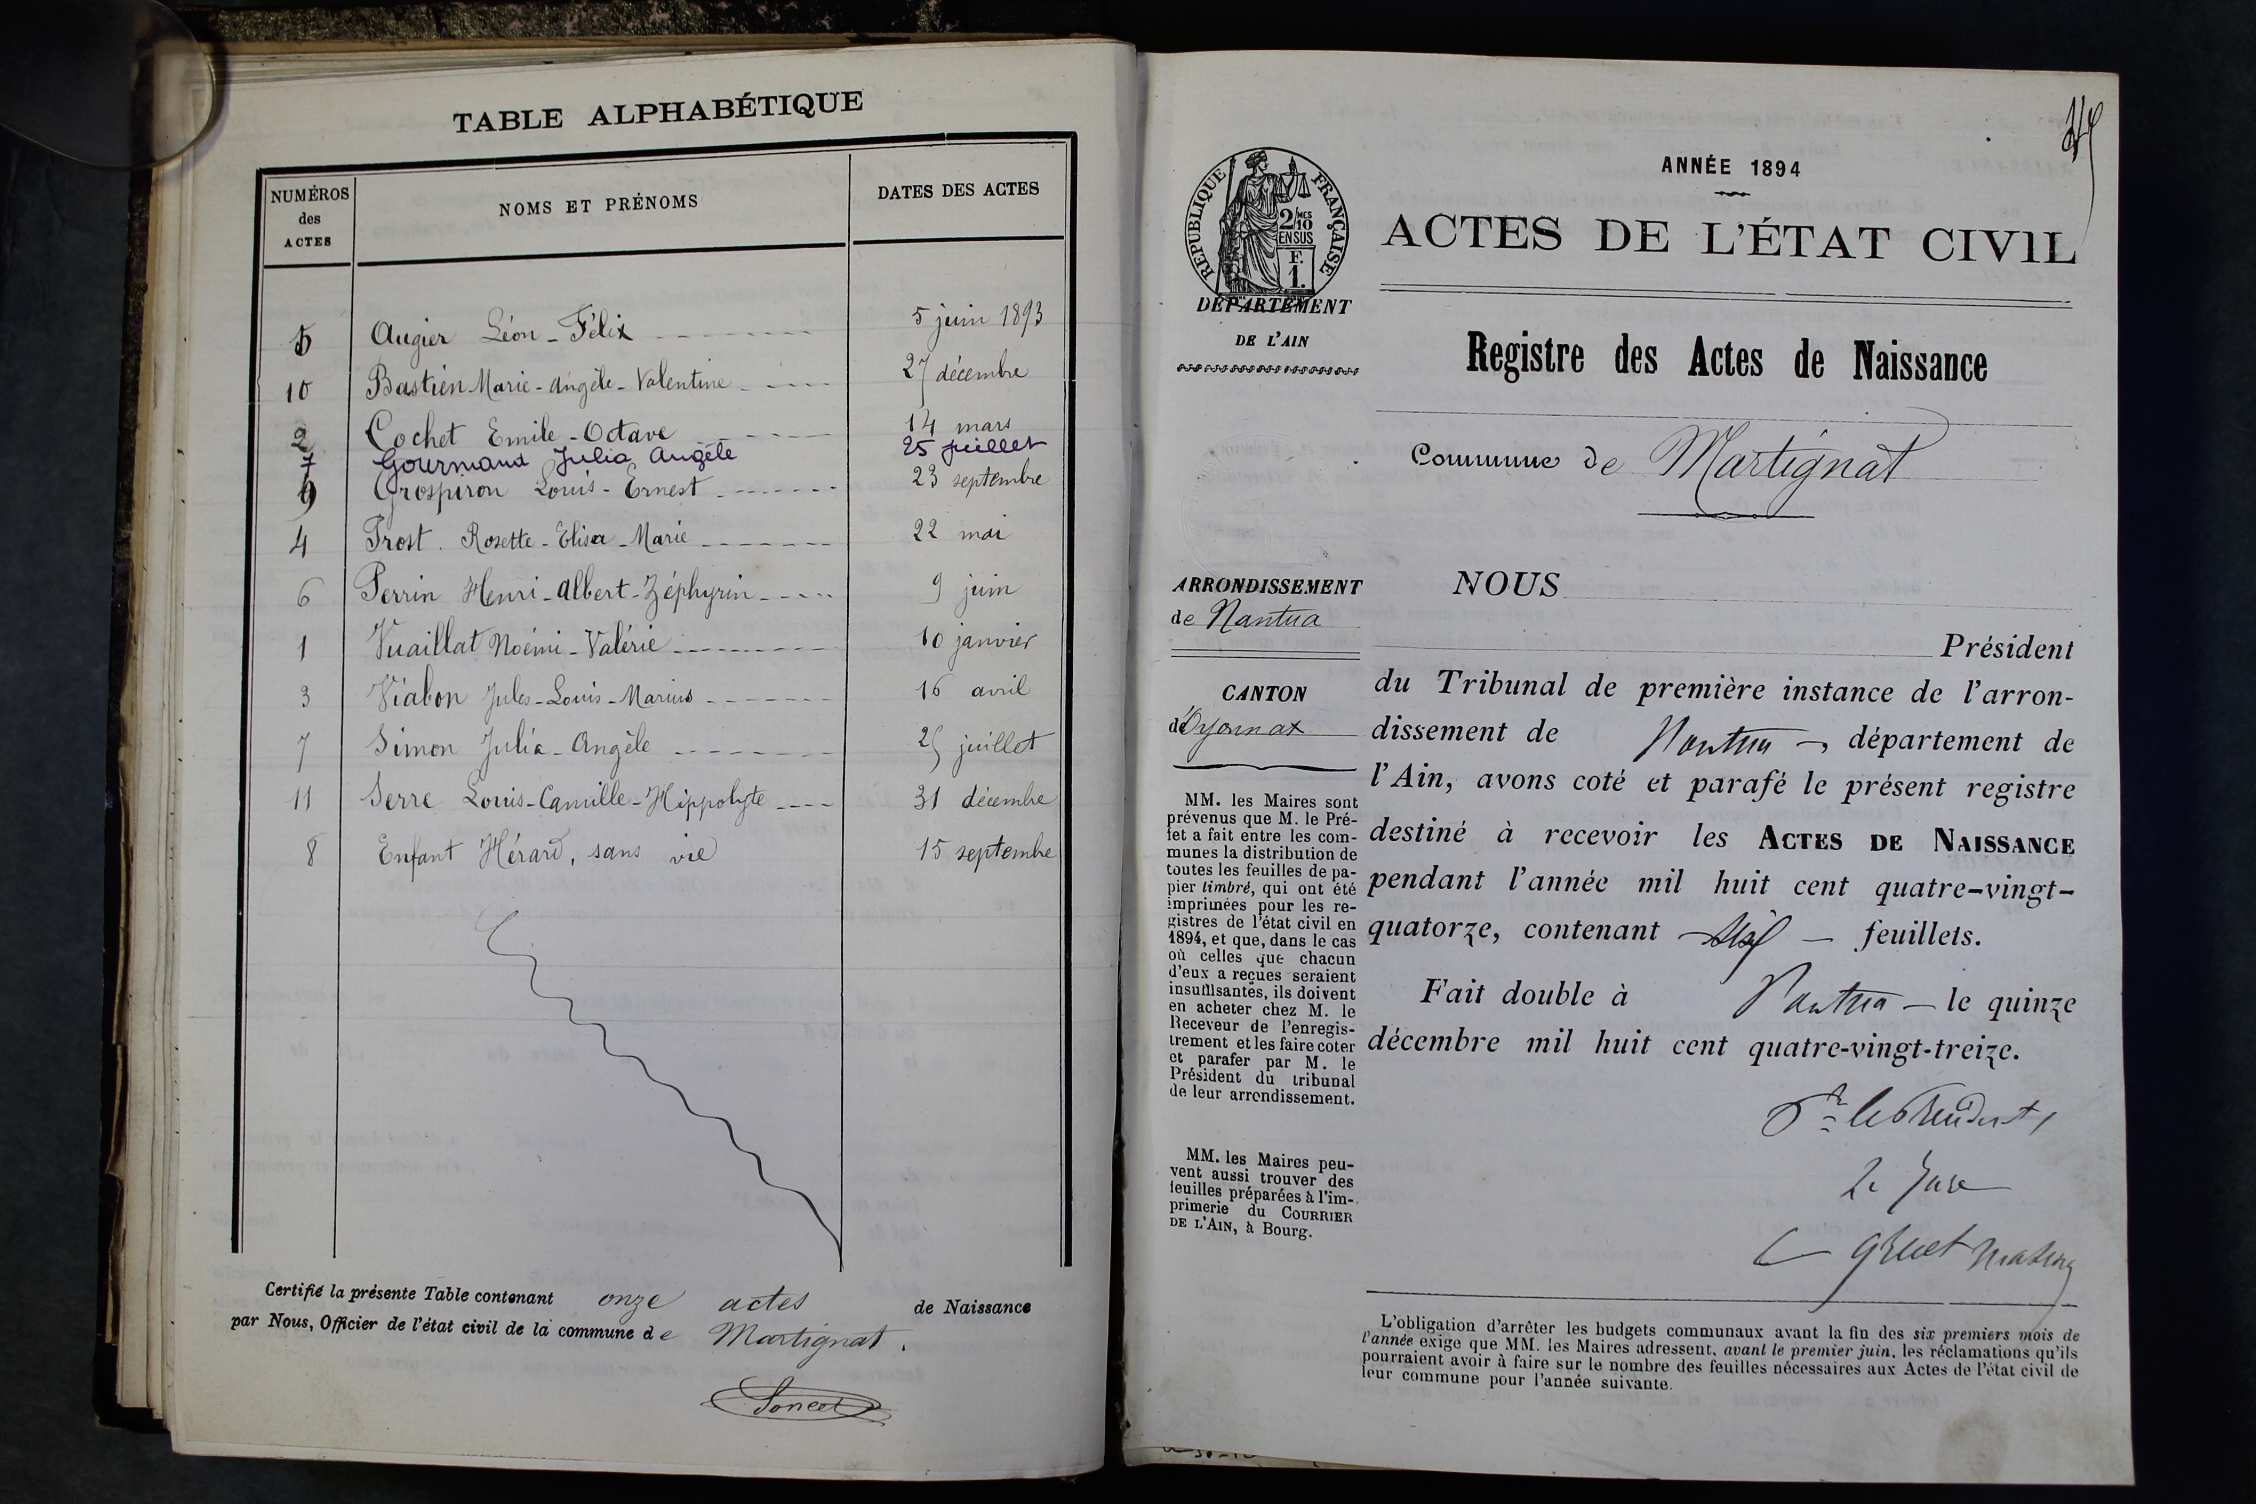 TABLE ALPHABÉTIQUE
NUMÉROS des ACTES
NOMS ET PRÉNOMS
DATES DES ACTES
5 Augier Léon - Félix 5 juin 1893
10 Bastien Marie - Angèle - Valentine 27 décembre
2 Cochet Emile - Octave 14 mars
7 Gourmand Julia Angèle 25 juillet
9 Grospiron Louis - Ernest 23 septembre
4 Prost Rosette - Elisa - Marie 22 mai
6 Perrin Henri - Albert - Zéphyrin 9 juin
1 Vuaillat Noémi - Valérie 10 janvier
3 Viabon Jules - Louis - Marius 16 avril
7 Simon Julia - Angèle 25 juillet
11 Serre Louis - Camille - Hippolyte 31 décembre
8 Enfant Hérard, sans vie 15 septembre
Certifié la présente Table contenant onze actes de Naissance
par Nous, Officier de l'état civil de la commune de Martignat.
ANNÉE 1894
RÉPUBLIQUE FRANÇAISE
2/10 MES
EN SUS
F.
1.
ACTES DE L'ÉTAT CIVIL
DÉPARTEMENT
DE L'AIN
Registre des Actes de Naissance
Commune de Martignat
ARRONDISSEMENT
de Nantua
CANTON
d'Oyonnax
MM. les Maires sont
prévenus que M. le Pré-
fet a fait entre les com-
munes la distribution de
toutes les feuilles de pa-
pier timbré, qui ont été
imprimées pour les re-
gistres de l'état civil en
1894, et que, dans le cas
où celles que chacun
d'eux a reçues seraient
insuffisantes, ils doivent
en acheter chez M. le
Receveur de l'enregis-
trement et les faire coter
et parafer par M. le
Président du tribunal
de leur arrondissement.
MM. les Maires peu-
vent aussi trouver des
feuilles préparées à l'im-
primerie du COURRIER
DE L'AIN, à Bourg.
NOUS
Président
du Tribunal de première instance de l'arron-
dissement de Nantua, département de
l'Ain, avons coté et parafé le présent registre
destiné à recevoir les ACTES DE NAISSANCE
pendant l'année mil huit cent quatre-vingt-
quatorze, contenant six feuillets.
Fait double à Nantua le quinze
décembre mil huit cent quatre-vingt-treize.
Pr le Président,
Le Juge
L'obligation d'arrêter les budgets communaux avant la fin des six premiers mois de
l'année exige que MM. les Maires adressent, avant le premier juin, les réclamations qu'ils
pourraient avoir à faire sur le nombre des feuilles nécessaires aux Actes de l'état civil de
leur commune pour l'année suivante.